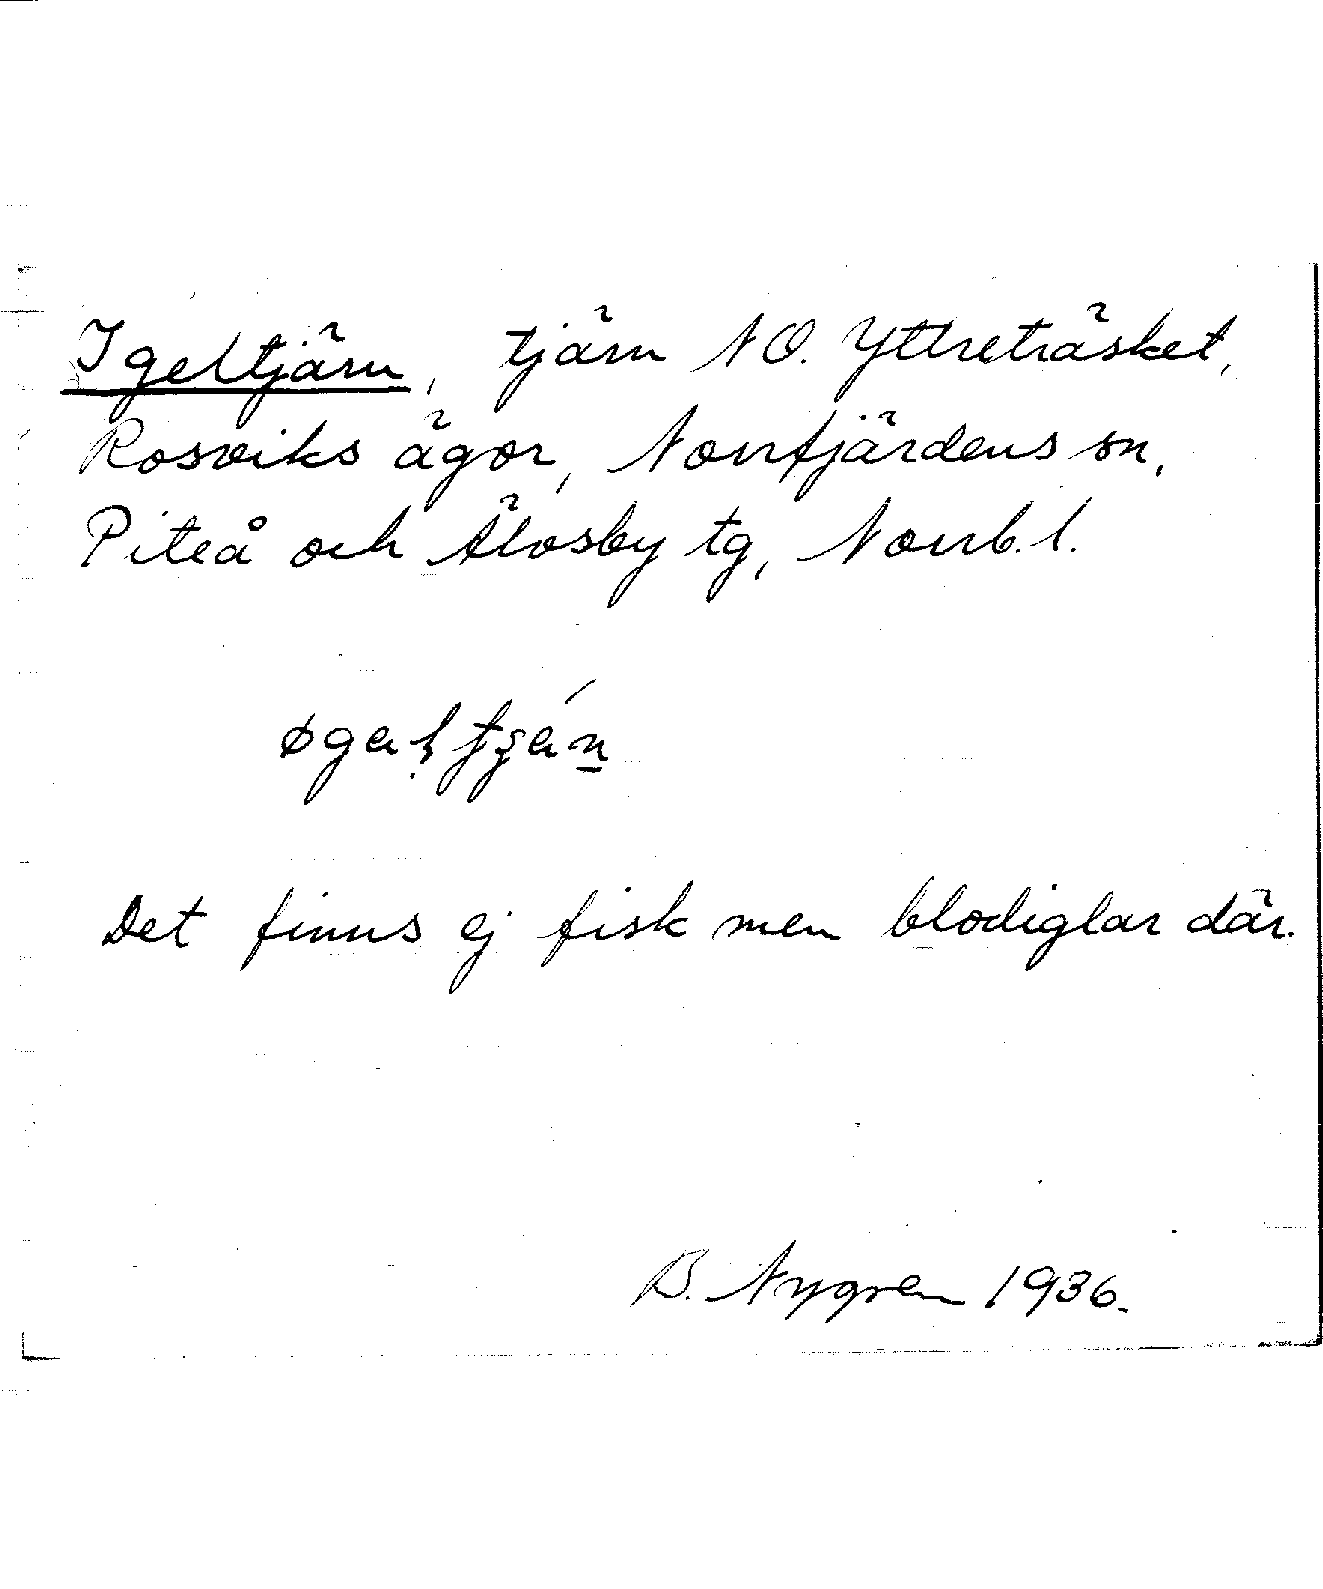 Igeltjärn, tjärn NO. Yttreträsket,
Rosviks ägor, Norrfjärdens sn,
Piteå och Älvsby tg, Norrb. l.
Det finns ej fisk men blodiglar där.
B. Nygren 1936.